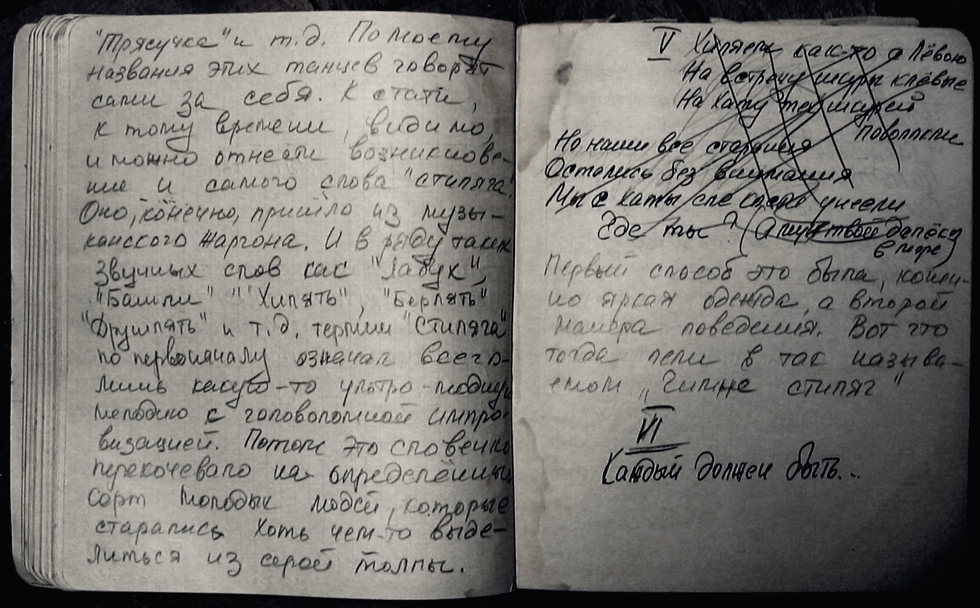 "Трясучка" и т.д. По моему
названия этих танцев говорят
сами за себя. К стати,
к тому времени, видимо,
и можно отнести возникнове-
ние и самого слова "стиляга".
Оно, конечно, пришло из музы-
канского жаргона. И в ряду таких
звучных слов как "Лабух",
"Башли" "Хилять", "Берлять"
"Друшлять" и т.д. термин "Стиляга"
по первоначалу означал всего-
лишь какую-то ультро-модную
мелодию с головоломной импро-
визацией. Потом это словечко
перекочевало на определённый
сорт молодых людей, которые
старались хоть чем-то выде-
литься из серой толпы.
V Хиляем как-то с Лёвою
На встречу чувихи клёвые
На хату
поволокли
Но наши все старания
Остались без внимания
Мы с хаты не солоно
Где ты? (А путь твой далёко
в море)
Первый способ это была, конеч-
но яркая одежда, а второй
манера поведения. Вот что
тогда пели в так называ-
емом „Гимне стиляг"
VI
Каждый должен быть...